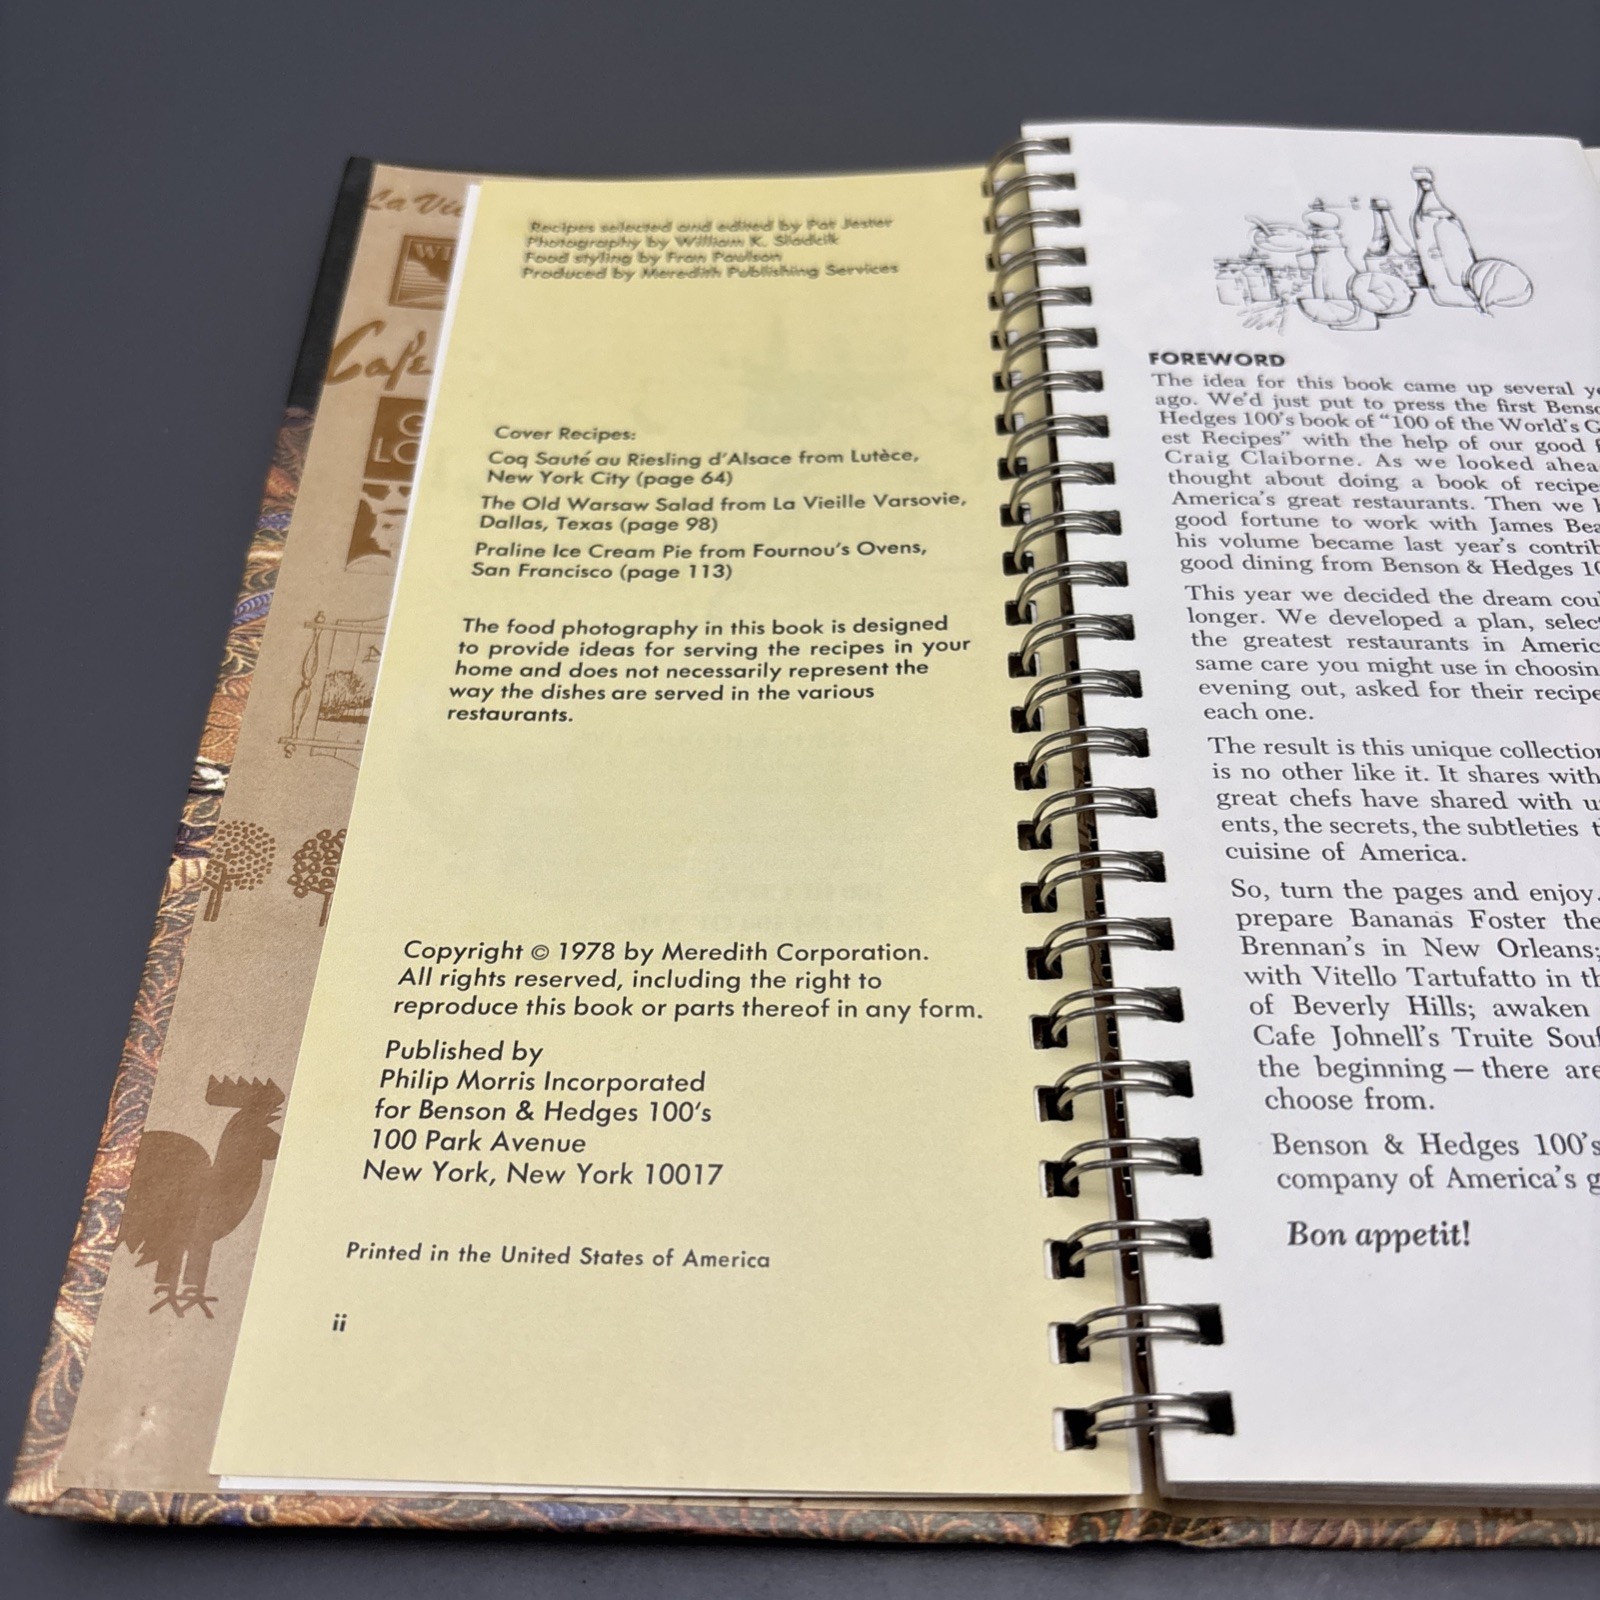 La Vie
Café
Recipes selected and edited by Pat Jester
Photography by William K. Sladcik
Food styling by Fran Paulson
Produced by Meredith Publishing Services
Cover Recipes:
Coq Sauté au Riesling d'Alsace from Lutèce,
New York City (page 64)
The Old Warsaw Salad from La Vieille Varsovie,
Dallas, Texas (page 98)
Praline Ice Cream Pie from Fournou's Ovens,
San Francisco (page 113)
The food photography in this book is designed
to provide ideas for serving the recipes in your
home and does not necessarily represent the
way the dishes are served in the various
restaurants.
Copyright © 1978 by Meredith Corporation.
All rights reserved, including the right to
reproduce this book or parts thereof in any form.
Published by
Philip Morris Incorporated
for Benson & Hedges 100's
100 Park Avenue
New York, New York 10017
Printed in the United States of America
ii
FOREWORD
The idea for this book came up several
ago. We'd just put to press the first
Hedges 100's book of "100 of the World's
est Recipes" with the help of our good
Craig Claiborne. As we looked
thought about doing a book of
America's great restaurants. Then we
good fortune to work with James
his volume became last year's
good dining from Benson & Hedges
This year we decided the dream
longer. We developed a plan,
the greatest restaurants in
same care you might use in
evening out, asked for their
each one.
The result is this unique
is no other like it. It shares with
great chefs have shared with
ents, the secrets, the subtleties
cuisine of America.
So, turn the pages and enjoy.
prepare Bananas Foster the
Brennan's in New Orleans;
with Vitello Tartufatto in
of Beverly Hills; awaken
Cafe Johnell's Truite
the beginning — there are
choose from.
Benson & Hedges 100's
company of America's
Bon appetit!